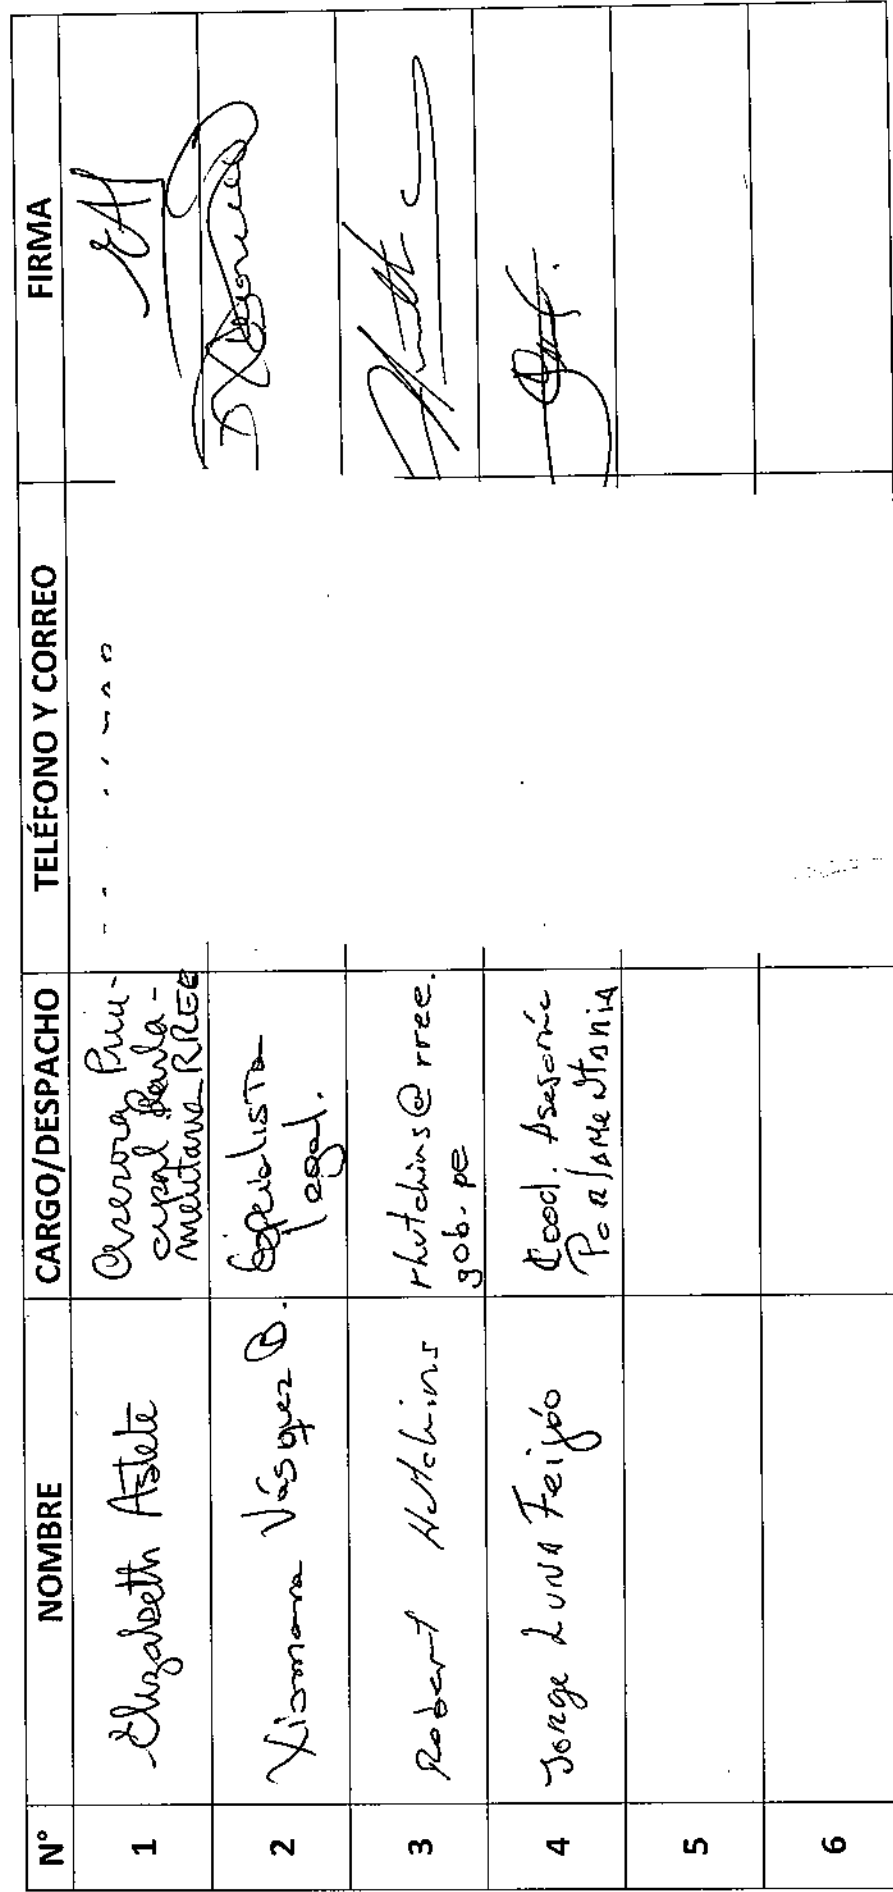 N° NOMBRE CARGO/DESPACHO TELÉFONO Y CORREO FIRMA
1 Elizabeth Astete Asesora Prin-
cipal Parla-
mentaria RREE
2 Xiomara Vásquez B. Especialista
legal.
3 Robert Hutchins rhutchins@rree.
gob.pe
4 Jorge Luna Feijóo Cood. Asesoría
Parlamentaria
5
6